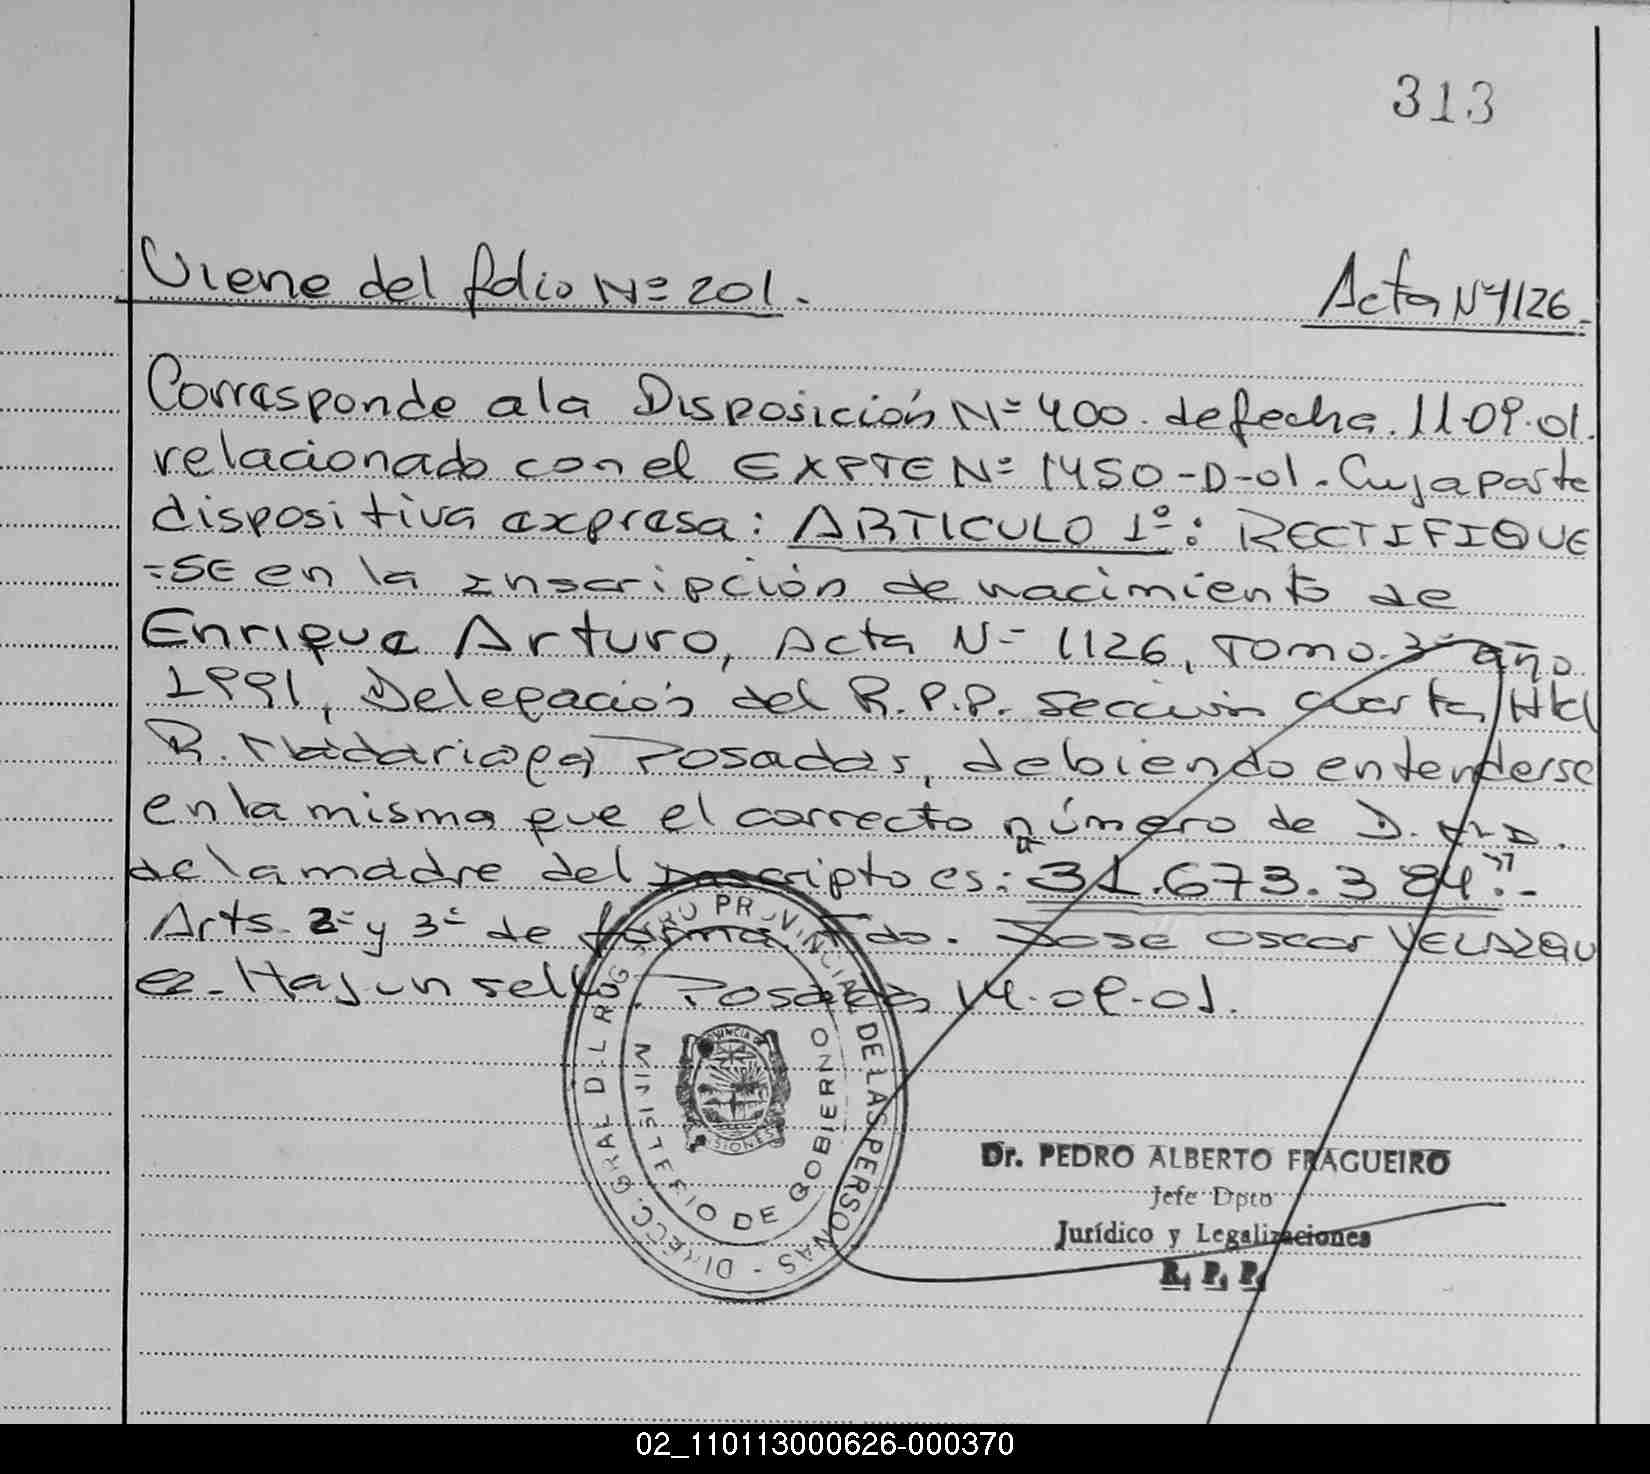 313
Viene del folio Nº 201.
Acta Nº 1126.
Corresponde a la Disposición Nº 400. de fecha. 11.09.01.
relacionado con el EXPTE Nº 1450-D-01. Cuya parte
dispositiva expresa: ARTICULO 1º: RECTIFIQUE
=SE en la Inscripción de nacimiento de
Enrique Arturo, Acta Nº 1126, Tomo 3º año
1991, Delegación del R.P.P. Sección Cuarta
R. Madariaga Posadas, debiendo entenderse
en la misma que el correcto número de D.N.I.
de la madre del Inscripto es: "31.673.384".-
Arts. 2º y 3º de forma. Fdo. Jose Oscar VELAZQU
ez. Hay un sello. Posadas 14.09.01.
DIRECC. GRAL DEL REGISTRO PROVINCIAL DE LAS PERSONAS -
MINISTERIO DE GOBIERNO
PROVINCIA DE
MISIONES
Dr. PEDRO ALBERTO FRAGUEIRO
Jefe Dpto
Jurídico y Legalizaciones
R. P. P.
02_110113000626-000370